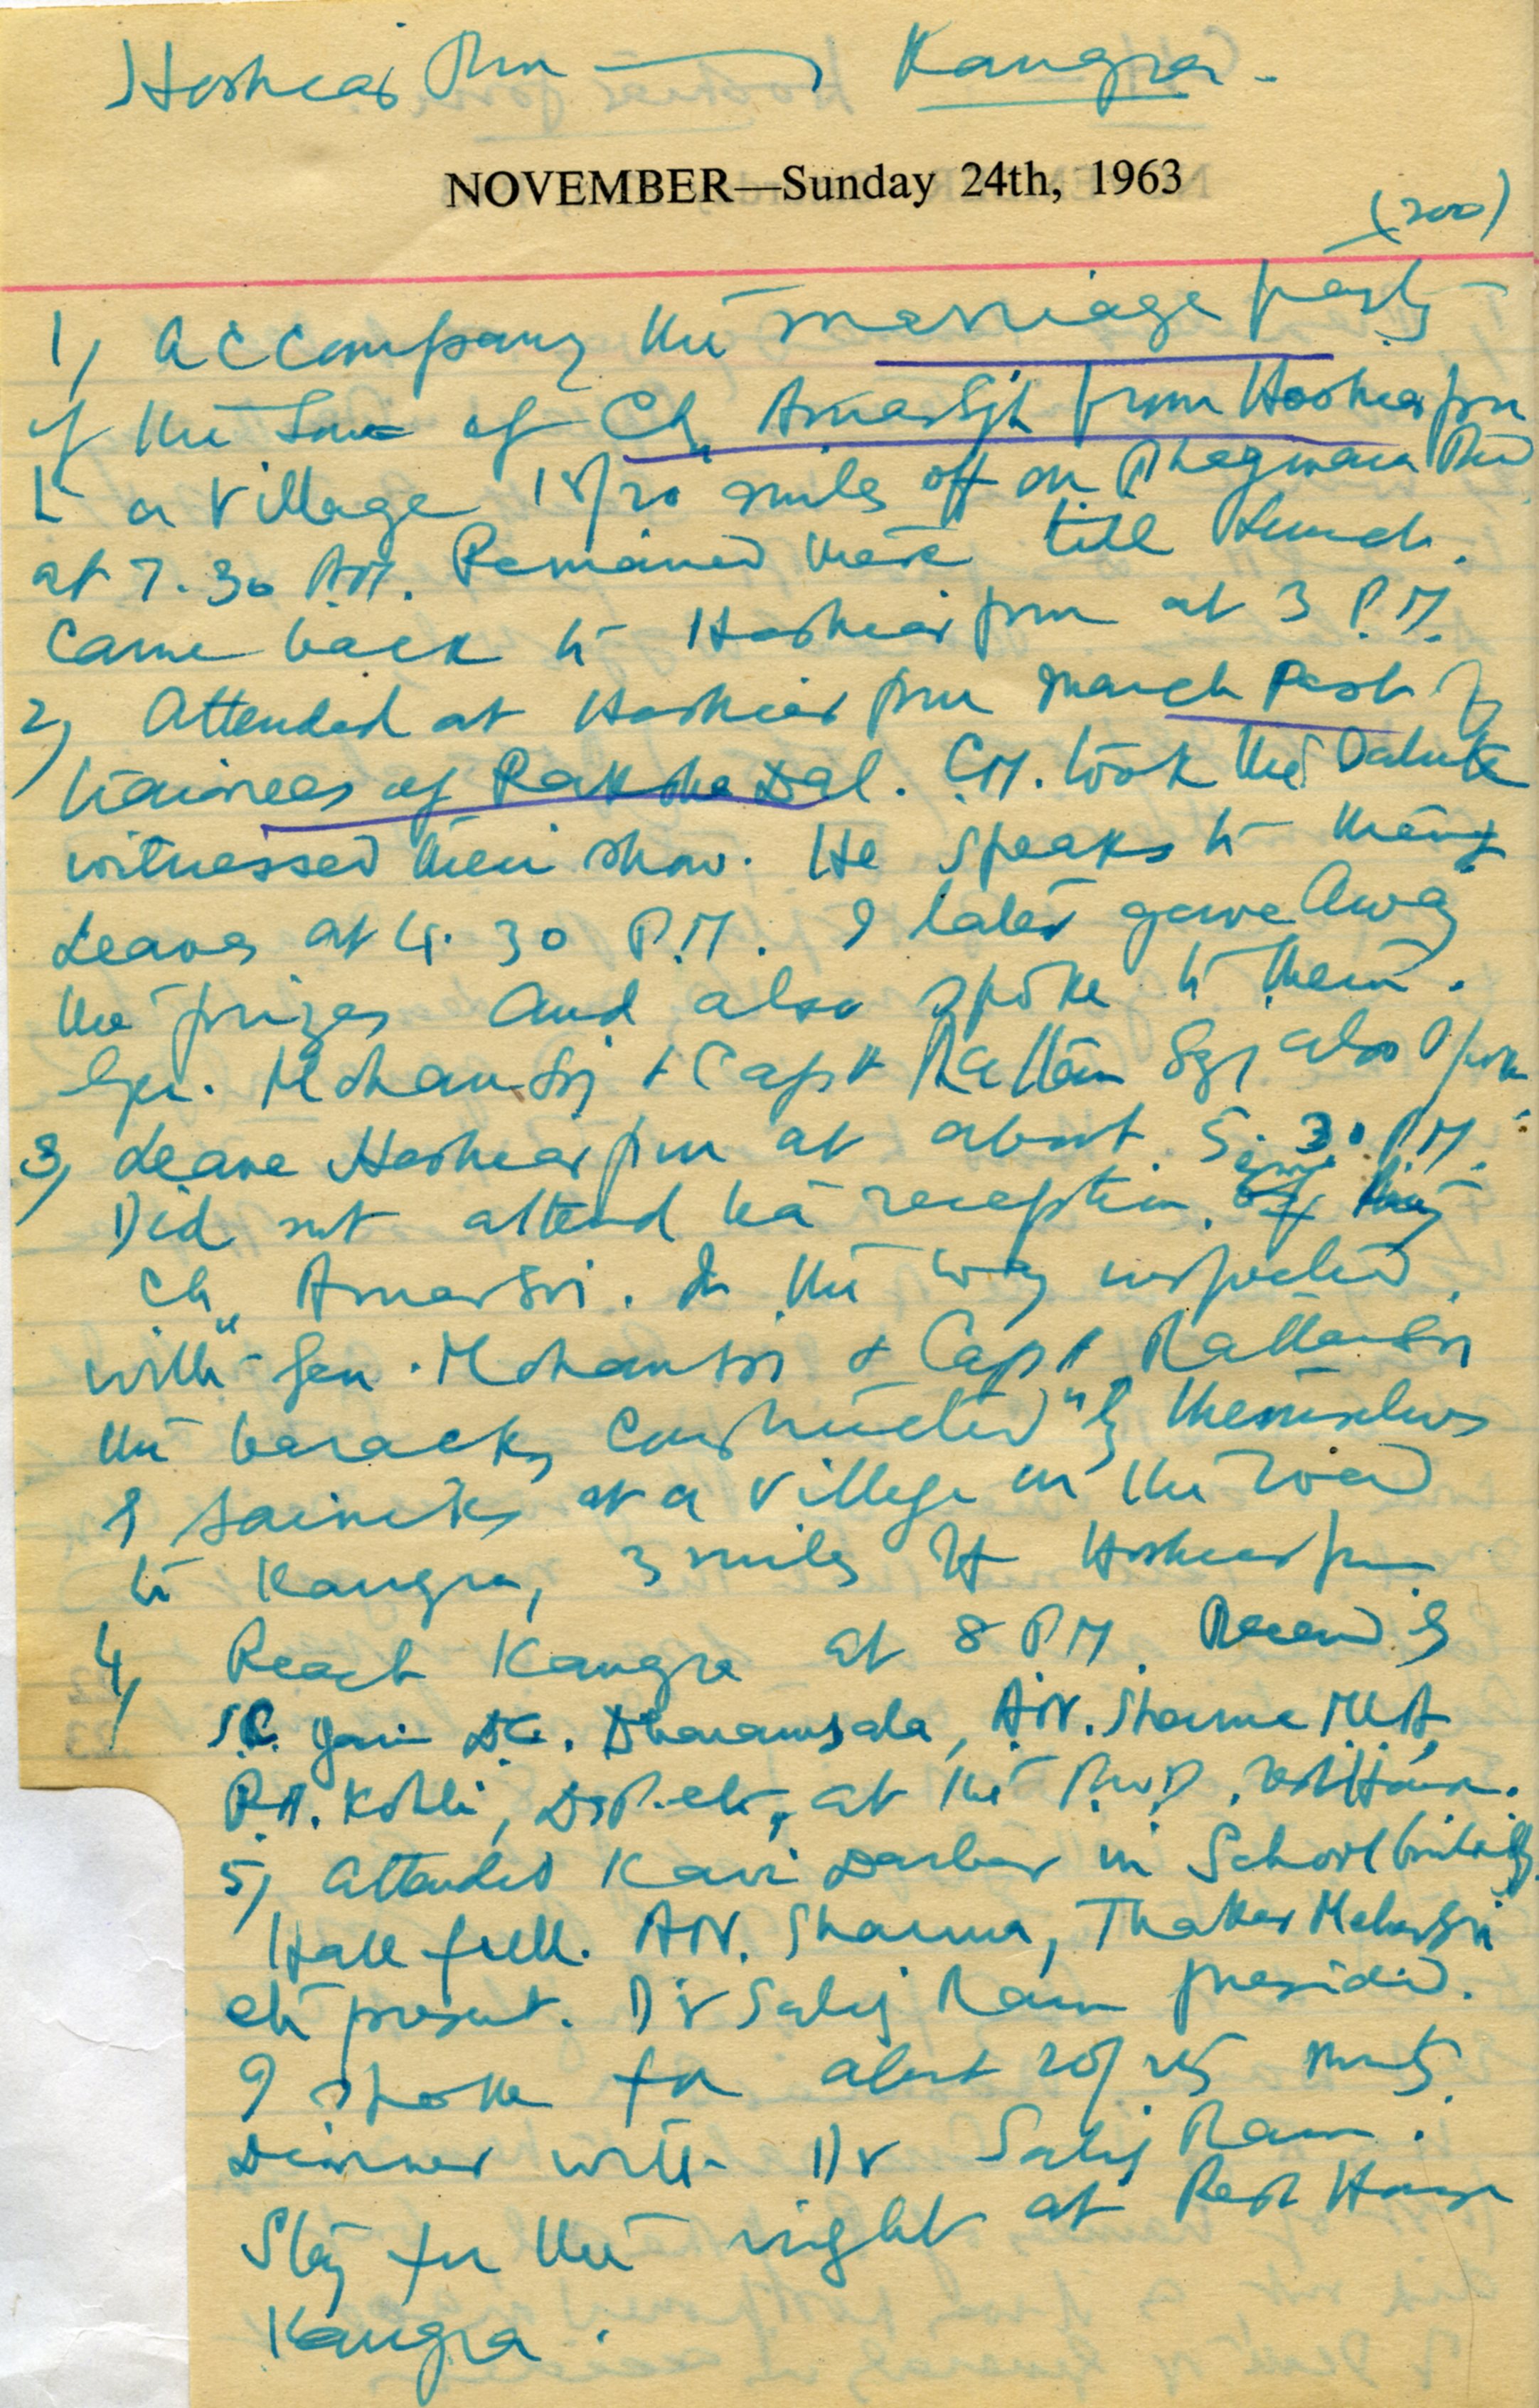 Hoshiarpur — Kangra.
NOVEMBER—Sunday 24th, 1963
(200)
1, Accompany the marriage party
of the son of Ch Amarsigh from Hoshiarpur
to a village 18/20 miles off on Phagwara Rd
at 7.30 AM. Remained there till Lunch.
Came back to Hoshiarpur at 3 P.M.
2, Attended at Hoshiarpur march Past by
trainees of Raksha Dal. C.M. took the Salute
witnessed their show. He speaks to them &
Leaves at 4.30 P.M. I later gave away
the prizes and also spoke to them.
Gen. Mohansgi & Capt Rattan Sgi also spoke
3, Leave Hoshiarpur at about 5.30 P.M.
Did not attend tea reception
Ch Amarsgi. In the way inspected
with Gen. Mohansgi & Capt Rattansgi
the baracks constructed by themselves
& Sainiks at a village on the road
to Kangra, 3 miles off Hoshiarpur
4, Reach Kangra at 8 PM. Received by
Jain D.C. Dharamsala, A.N. Sharma MLA,
P.N. Kohli, DSP. etc, at the P.W.D. rest House.
5, Attended Kavi Darbar in School building
Hall full. A.N. Sharma, Thakar Meharsgi
etc present. Dr Salig Ram presided.
I spoke for about 20/25 mnts.
Dinner with Dr Salig Ram.
Stay for the night at Rest House
Kangra.